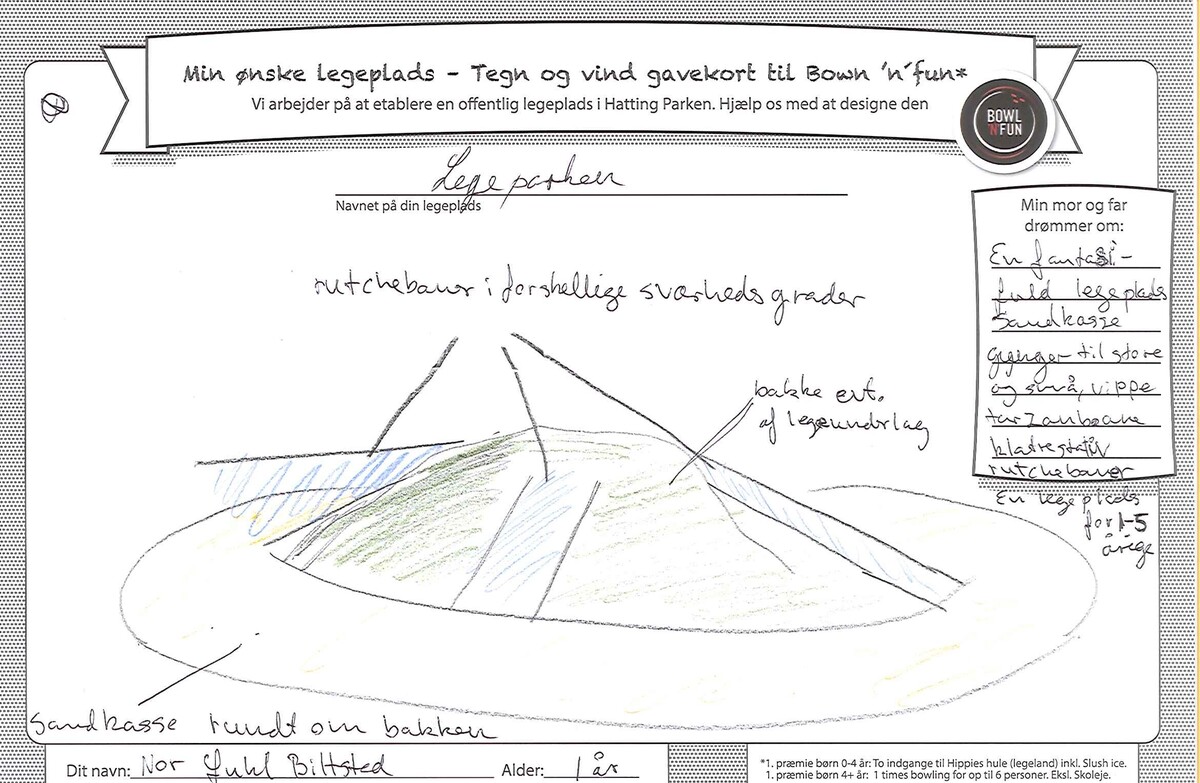 Min ønske legeplads - Tegn og vind gavekort til Bown 'n' fun*
Vi arbejder på at etablere en offentlig legeplads i Hatting Parken. Hjælp os med at designe den
BOWL
'N'FUN
Legeparken
Navnet på din legeplads
Min mor og far
drømmer om:
En fantasi-
fuld legeplads
Sandkasse
gynger til store
og små, vippe
tarzanbane
klatrestativ
rutchebaner
En legeplads
for 1-5
årige
rutchebaner i forskellige sværhedsgrader
bakke evt.
af legeunderlag
Sandkasse rundt om bakken
Dit navn: Nor Juhl Biltsted
Alder: 1 år
*1. præmie børn 0-4 år: To indgange til Hippies hule (legeland) inkl. Slush ice.
1. præmie børn 4+ år: 1 times bowling for op til 6 personer. Eksl. Skoleje.